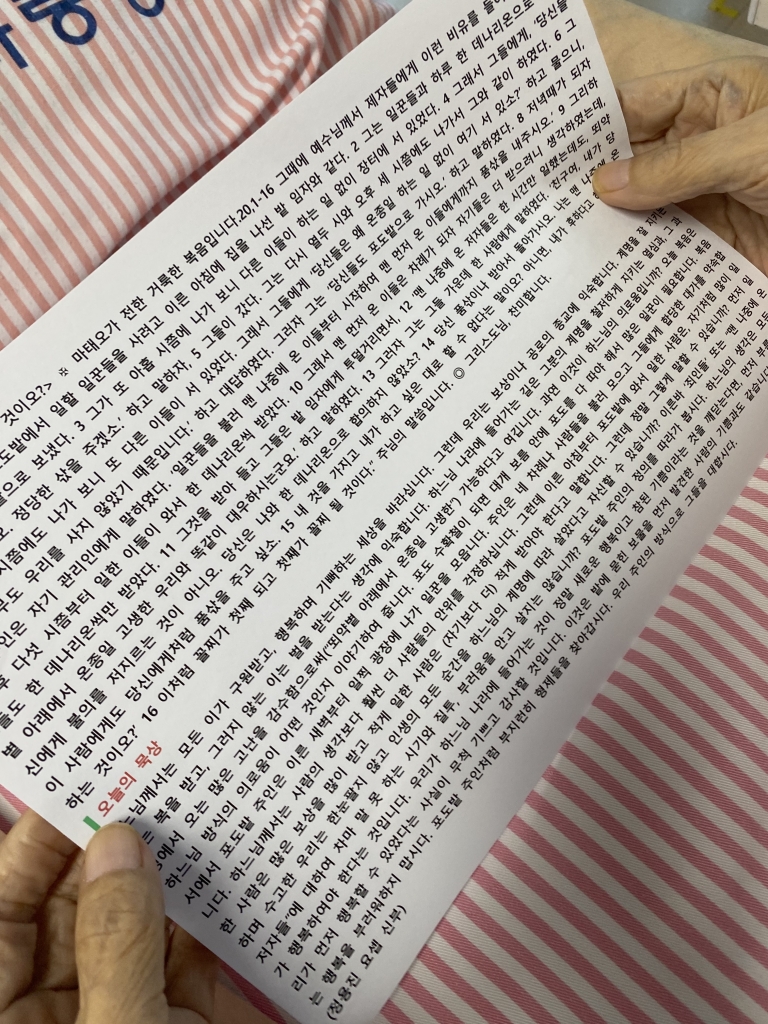 것이오?> ※ 마태오가 전한 거룩한 복음입니다.20,1-16 그때에 예수님께서 제자들에게 이런 비유를 들어
도밭에서 일할 일꾼들을 사려고 이른 아침에 집을 나선 밭 임자와 같다. 2 그는 일꾼들과 하루 한 데나리온으로
으로 보냈다. 3 그가 또 아홉 시쯤에 나가 보니 다른 이들이 하는 일 없이 장터에 서 있었다. 4 그래서 그들에게, '당신들
정당한 삯을 주겠소.' 하고 말하자, 5 그들이 갔다. 그는 다시 열두 시와 오후 세 시쯤에도 나가서 그와 같이 하였다. 6 그
시쯤에도 나가 보니 또 다른 이들이 서 있었다. 그래서 그들에게 '당신들은 왜 온종일 하는 일 없이 여기 서 있소?' 하고 물으니,
무도 우리를 사지 않았기 때문입니다.' 하고 대답하였다. 그러자 그는 '당신들도 포도밭으로 가시오.' 하고 말하였다. 8 저녁때가 되자
인은 자기 관리인에게 말하였다. '일꾼들을 불러 맨 나중에 온 이들부터 시작하여 맨 먼저 온 이들에게까지 품삯을 내주시오.' 9 그리하
후 다섯 시쯤부터 일한 이들이 와서 한 데나리온씩 받았다. 10 그래서 맨 먼저 온 이들은 차례가 되자 자기들은 더 받으려니 생각하였는데,
들도 한 데나리온씩만 받았다. 11 그것을 받아 들고 그들은 밭 임자에게 투덜거리면서, 12 '맨 나중에 온 저자들은 한 시간만 일했는데도, 뙤약
볕 아래에서 온종일 고생한 우리와 똑같이 대우하시는군요.' 하고 말하였다. 13 그러자 그는 그들 가운데 한 사람에게 말하였다. '친구여, 내가 당
신에게 불의를 저지르는 것이 아니오. 당신은 나와 한 데나리온으로 합의하지 않았소? 14 당신 품삯이나 받아서 돌아가시오. 나는 맨 나중에 온
이 사람에게도 당신에게처럼 품삯을 주고 싶소. 15 내 것을 가지고 내가 하고 싶은 대로 할 수 없다는 말이오? 아니면, 내가 후하다고
하는 것이오?' 16 이처럼 꼴찌가 첫째 되고 첫째가 꼴찌 될 것이다." 주님의 말씀입니다. ◎ 그리스도님, 찬미합니다.
오늘의 묵상
느님께서는 모든 이가 구원받고, 행복하며 기뻐하는 세상을 바라십니다. 그런데 우리는 보상이나 공로의 종교에 익숙합니다. 계명을 잘 지키는
복을 받고, 그러지 않는 이는 벌을 받는다는 생각에 익숙합니다. 하느님 나라에 들어가는 길은 그분의 계명을 철저하게 지키는 열심과, 그 과
에서 오는 많은 고난을 감수함으로써("뙤약볕 아래에서 온종일 고생한") 가능하다고 여깁니다. 과연 이것이 하느님의 의로움입니까? 오늘 복음은
하느님 방식의 의로움이 어떤 것인지 이야기하여 줍니다. 포도 수확철이 되면 대개 보름 안에 포도를 다 따야 해서 많은 일꾼이 필요합니다. 복음
서에서 포도밭 주인은 이른 새벽부터 일찍 광장에 나가 일꾼을 모읍니다. 주인은 네 차례나 사람들을 불러 모으고 그들에게 합당한 대가를 약속합
니다. 하느님께서는 사람의 생각보다 훨씬 더 사람들의 안위를 걱정하십니다. 그런데 이른 아침부터 포도밭에 와서 일한 사람은, 자기처럼 많이 일
한 사람은 많은 보상을 많이 받고 적게 일한 사람은 (자기보다 더) 적게 받아야 한다고 말합니다. 그런데 정말 그렇게 말할 수 있습니까? 먼저 일
하며 수고한 우리는 한눈팔지 않고 인생의 모든 순간을 하느님의 계명에 따라 살았다고 자신할 수 있습니까? 이른바 죄인들 또는 "맨 나중에 온
저자들"에 대하여 차마 말 못 하는 시기와 질투, 부러움을 안고 살지는 않습니까? 포도밭 주인의 정의를 따라가 봅시다. 하느님의 생각은 모두
가 행복하여야 한다는 것입니다. 우리가 하느님 나라에 들어가는 것이 정말 새로운 행복이고 참된 기쁨이라는 것을 깨닫는다면, 먼저 부름
리가 먼저 행복할 수 있었다는 사실이 무척 기쁘고 감사할 것입니다. 이것은 밭에 묻힌 보물을 먼저 발견한 사람의 기쁨과도 같습니
는 행복을 부러워하지 맙시다. 포도밭 주인처럼 부지런히 형제들을 찾아갑시다. 우리 주인의 방식으로 그들을 대합시다.
(정용진 요셉 신부)